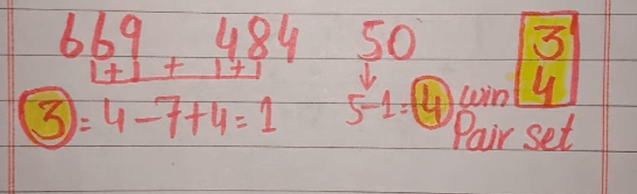 669 484 50 3
+ + + 4
3 = 4-7+4=1 5-1=4 win
Pair set